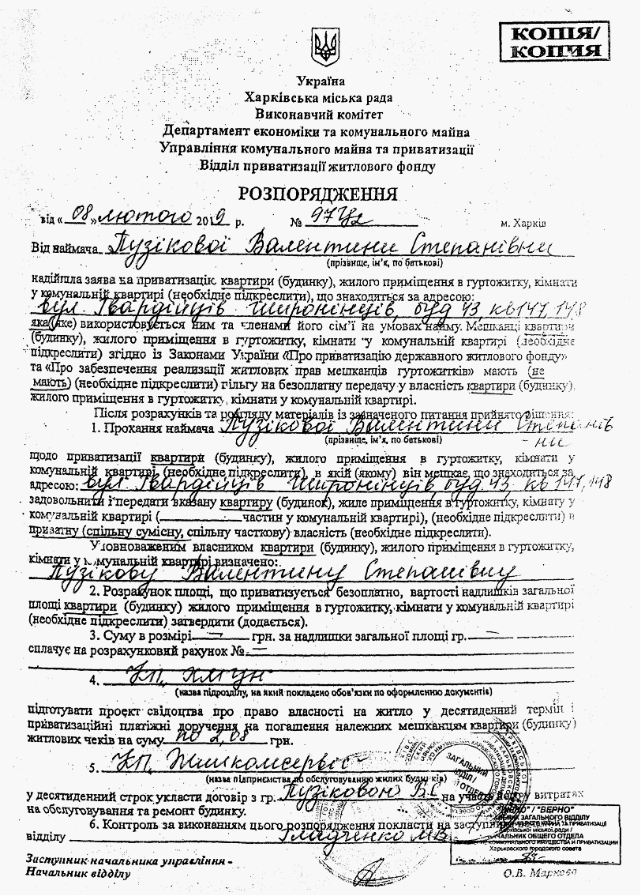 КОПІЯ/
КОПИЯ
Україна
Харківська міська рада
Виконавчий комітет
Департамент економіки та комунального майна
Управління комунального майна та приватизації
Відділ приватизації житлового фонду
РОЗПОРЯДЖЕННЯ
від « 08 » лютого 2019 р. № м. Харків
Від наймача Пузікової Валентини Степанівни
(прізвище, ім'я, по батькові)
надійшла заява на приватизацію квартири (будинку), жилого приміщення в гуртожитку, кімнати
у комунальній квартирі (необхідне підкреслити), що знаходяться за адресою:
вул. Гвардійців Широнінців, буд 43, кв 147, 148
яка (яке) використовується ним та членами його сім'ї на умовах найму. Мешканці квартири
(будинку), жилого приміщення в гуртожитку, кімнати у комунальній квартирі (необхідне
підкреслити) згідно із Законами України «Про приватизацію державного житлового фонду»
та «Про забезпечення реалізації житлових прав мешканців гуртожитків» мають (не
мають) (необхідне підкреслити) пільгу на безоплатну передачу у власність квартири (будинку),
жилого приміщення в гуртожитку, кімнати у комунальній квартирі.
Після розрахунків та розгляду матеріалів із зазначеного питання прийнято рішення:
1. Прохання наймача Пузікової Валентини Степанів
(прізвище, ім'я, по батькові) - ни
щодо приватизації квартири (будинку), жилого приміщення в гуртожитку, кімнати у
комунальній квартирі (необхідне підкреслити), в якій (якому) він мешкає, що знаходиться за
адресою: вул. Гвардійців Широнінців, буд 43, кв 147, 148
задовольнити і передати вказану квартиру (будинок), жиле приміщення в гуртожитку, кімнату у
комунальній квартирі ( частин у комунальній квартирі), (необхідне підкреслити) в
приватну (спільну сумісну, спільну часткову) власність (необхідне підкреслити).
Уповноваженим власником квартири (будинку), жилого приміщення в гуртожитку,
кімнати у комунальній квартирі визначено:
Пузікову Валентину Степанівну
2. Розрахунок площі, що приватизується безоплатно, вартості надлишків загальної
площі квартири (будинку) жилого приміщення в гуртожитку, кімнати у комунальній квартирі
(необхідне підкреслити) затвердити (додається).
3. Суму в розмірі — грн. за надлишки загальної площі гр. —
сплачує на розрахунковий рахунок № —
4. КП
(назва підрозділу, на який покладено обов'язки по оформленню документів)
підготувати проект свідоцтва про право власності на житло у десятиденний термін і
приватизаційні платіжні доручення на погашення належних мешканцям квартири (будинку)
житлових чеків на суму по 2,08 грн.
5. КП Жилкомсервіс
(назва підприємства по обслуговуванню жилих будинків)
у десятиденний строк укласти договір з гр. Пузіковою В.С. на участь у витратах
на обслуговування та ремонт будинку.
6. Контроль за виконанням цього розпорядження покласти на заступника
відділу
ЗАГАЛЬНИЙ
ВІДДІЛ
"ВЕРНО"
ЗАГАЛЬНОГО ВІДДІЛУ
НАЧАЛЬНИК ОБЩЕГО ОТДЕЛА
Харьковского городского совета
Заступник начальника управління -
Начальник відділу О.В. Маркова